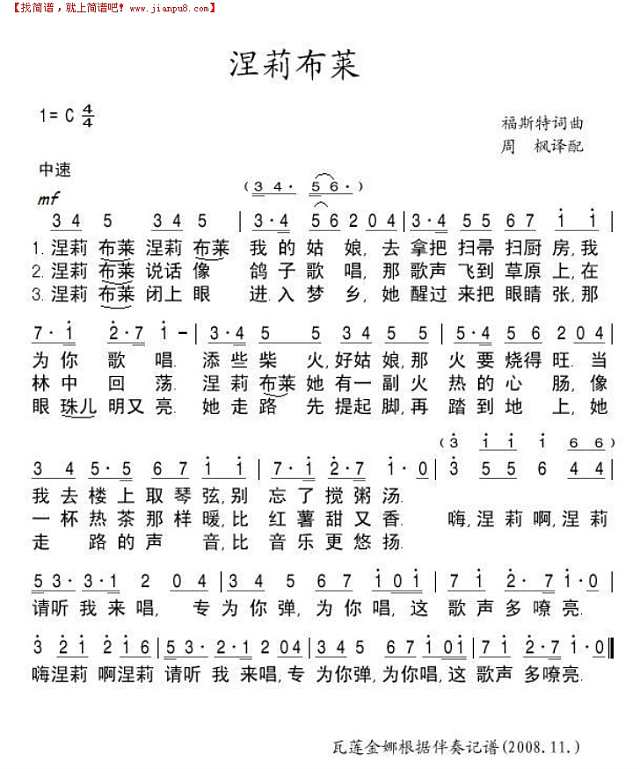 【找简谱，就上简谱吧! www.jianpu8.com】
涅莉布莱
1= C 4/4
福斯特词曲
周 枫译配
中速
(3 4· 5 6·)
mf
3 4 5 3 4 5 | 3·4 5 6 2 0 4 | 3·4 5 5 6 7 i i |
1. 涅莉 布莱 涅莉 布莱 我 的 姑 娘, 去 拿把 扫帚 扫厨 房,我
2. 涅莉 布莱 说话 像 鸽 子 歌 唱, 那 歌声 飞到 草原 上,在
3. 涅莉 布莱 闭上 眼 进.入 梦 乡,她 醒过 来把 眼睛 张,那
7·i 2·7 i – | 3·4 5 5 5 | 3·4 5 6 2 0 4 |
为你 歌 唱. 添些 柴 火,好姑 娘,那 火要 烧得 旺. 当
林中 回 荡. 涅莉 布莱 她 有一 副火 热的 心 肠,像
眼 珠儿 明又 亮. 她走 路 先 提起 脚,再 踏到 地 上,她
(3 i i i 6 6)
3 4 5·5 6 7 i i | 7·i 2·7 i·0 | 3 5 5 6 4 4 |
我 去 楼 上 取 琴 弦,别 忘 了 搅 粥 汤.
一 杯 热 茶 那 样 暖,比 红 薯 甜 又 香. 嗨,涅 莉 啊,涅 莉
走 路 的 声 音,比 音 乐 更 悠 扬.
5 3·3·1 2 0 4 | 3 5 5 6 7 i i 0 i | 7 i 2·7 i·0 |
请听 我 来 唱, 专 为 你 弹, 为 你 唱, 这 歌 声 多 嘹 亮.
3 2 i 2 i 6 | 5 5 3 2·1 2 0 4 | 3 5 5 6 7 i i 0 i | 7 i 2·7 i·0 ‖
嗨涅莉 啊涅莉 请听 我 来唱,专 为你弹,为你唱,这 歌声 多 嘹亮.
瓦莲金娜根据伴奏记谱(2008.11.)